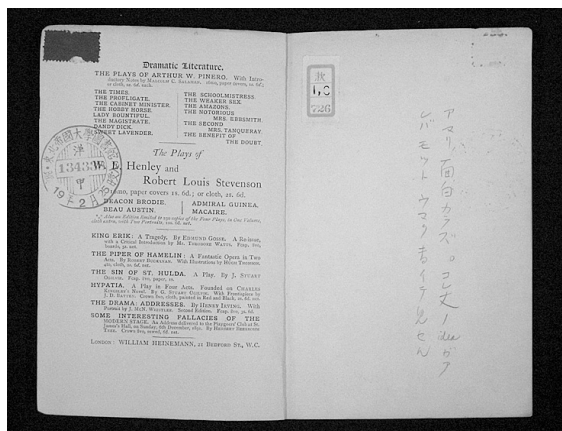 Dramatic Literature.
THE PLAYS OF ARTHUR W. PINERO. With Intro-
THE TIMES.
THE PROFLIGATE.
THE CABINET MINISTER.
THE HOBBY HORSE.
LADY BOUNTIFUL.
THE MAGISTRATE.
DANDY DICK.
SWEET LAVENDER.
THE SCHOOLMISTRESS.
THE WEAKER SEX.
THE AMAZONS.
THE NOTORIOUS
MRS. EBBSMITH
THE SECOND
MRS. TANQUERAY.
THE BENEFIT OF
THE DOUBT.
The Plays of
W. E. Henley and
Robert Louis Stevenson
paper covers 1s. 6d.; or cloth, 2s. 6d.
DEACON BRODIE.
BEAU AUSTIN.
ADMIRAL GUINEA.
MACAIRE.
KING ERIK: A Tragedy. By EDMUND GOSSE. A Re-issue,
with a Critical Introduction by Mr. THEODORE WATTS. Fcap. 8vo,
boards, 5s. net.
THE PIPER OF HAMELIN: A Fantastic Opera in Two
Acts. By ROBERT BUCHANAN. With Illustrations by HUGH THOMSON.
4to, cloth, 2s. 6d. net.
THE SIN OF ST. HULDA. A Play. By G. STUART
OGILVIE. Fcap. 8vo, paper, 1s.
HYPATIA. A Play in Four Acts. Founded on CHARLES
KINGSLEY'S Novel. By G. STUART OGILVIE. With Frontispiece by
J. D. BATTEN. Crown 8vo, cloth, printed in Red and Black, 2s. 6d. net.
THE DRAMA: ADDRESSES. By HENRY IRVING. With
Portrait by J. McN. WHISTLER. Second Edition. Fcap. 8vo, 3s. 6d.
SOME INTERESTING FALLACIES OF THE
MODERN STAGE. An Address delivered to the Playgoers' Club at St.
James's Hall, on Sunday, 6th December, 1891. By HERBERT BEERBOHM
TREE. Crown 8vo, sewed, 6d. net.
LONDON: WILLIAM HEINEMANN, 21 BEDFORD ST., W.C.
洋
13433
甲
726
アマリ面白カラズ。コレ丈ノ idea ガア
レバモット ウマク書イテ見せん